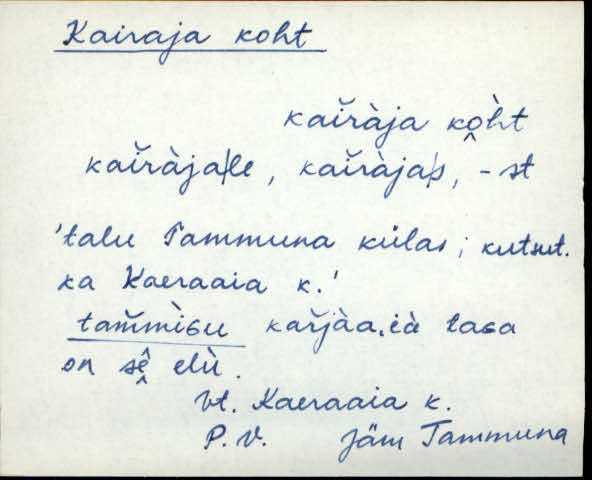 Kairaja koht
kaĭràja kò̭ht
kaĭràja|le, kaĭràja|s, -st
'talu Tammuna külas; kutsut.
ka Kaeraaia k.'
tam̆mìsu kaĭjàa.ià tasa
on sḙ̂ elù.
Vt. Kaeraaia k.
P.V. Jäm Tammuna